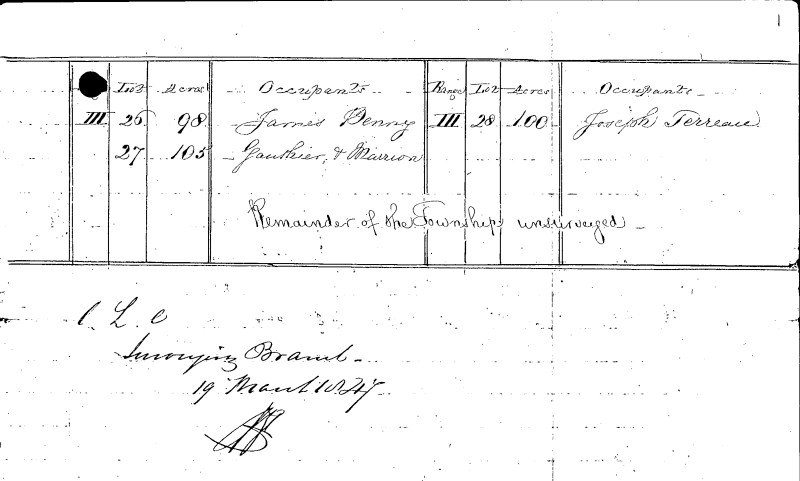 1
Lot Acres Occupants Range Lot Acres Occupants
III 26 98 James Penny III 28 100 Joseph Terreau
27 105 Gauthier & Marrion
Remainder of the Township unsurveyed
C. L. C
Surveying Branch
19 March